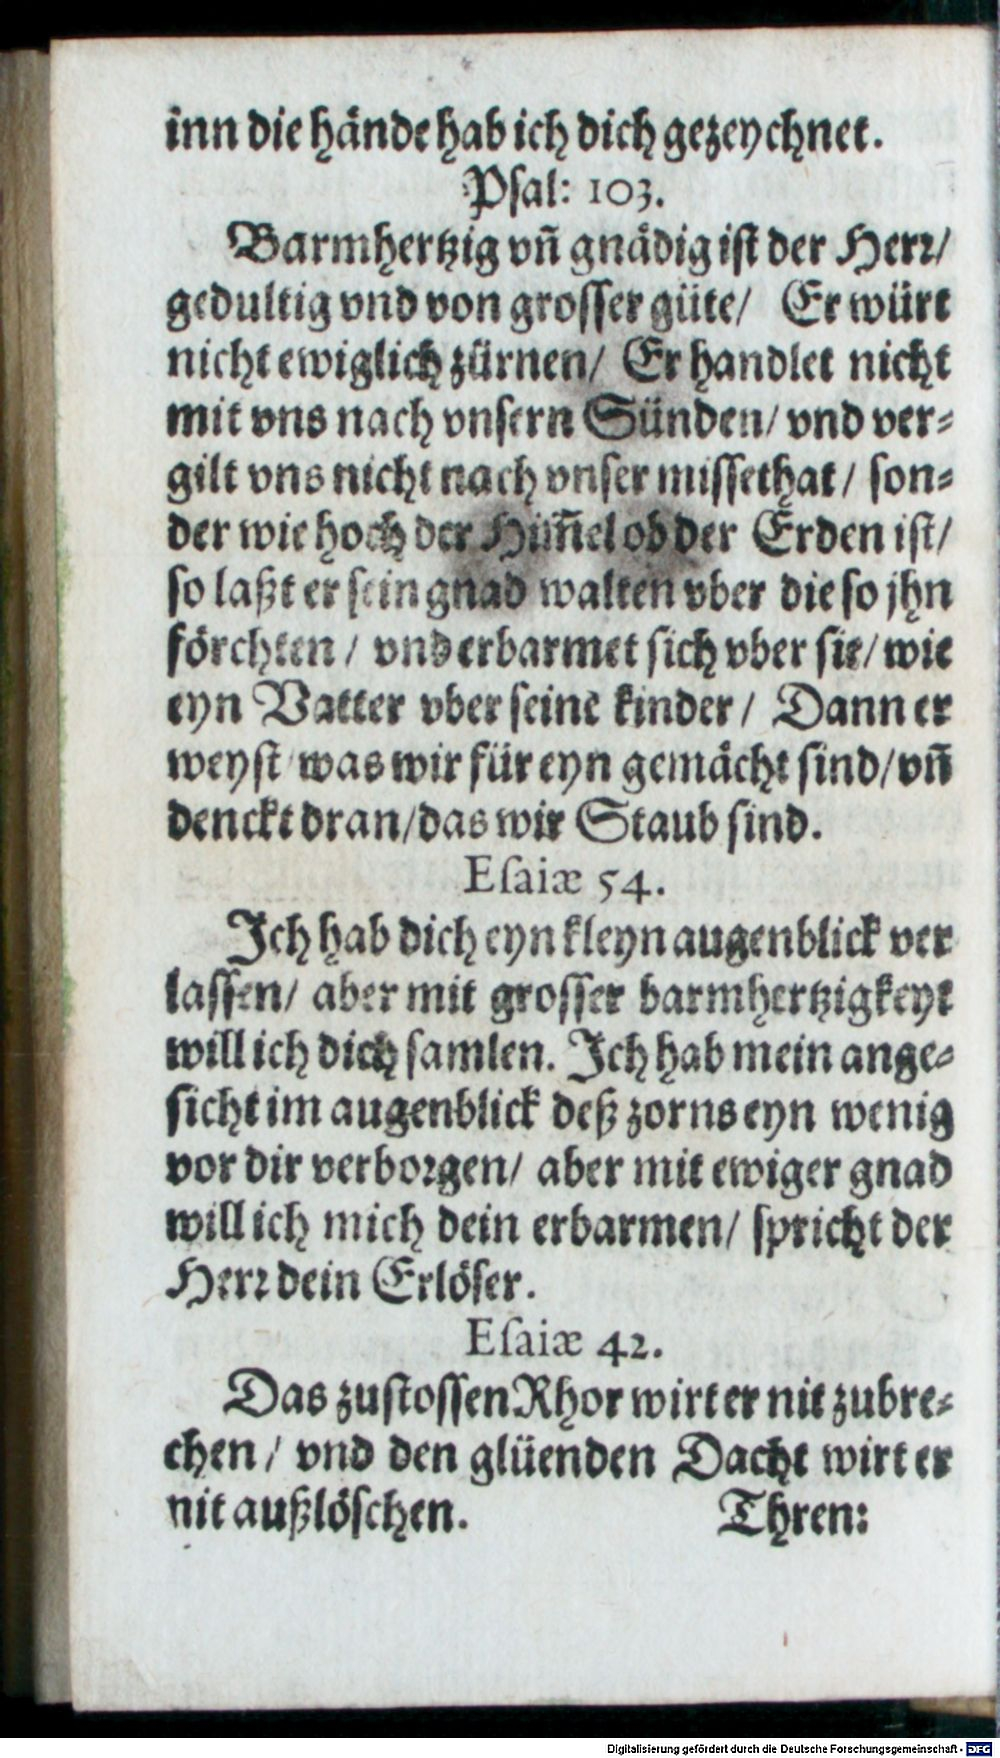 inn die hände hab ich dich gezeychnet.
Psal: 103.
Barmhertzig vñ gnädig ist der Herr/
gedultig vnd von grosser güte/ Er würt
nicht ewiglich zürnen/ Er handlet nicht
mit vns nach vnsern Sünden/ vnd ver⸗
gilt vns nicht nach vnser missethat/ son⸗
der wie hoch der Him̃el ob der Erden ist/
so laßt er sein gnad walten vber die so jhn
förchten/ vnd erbarmet sich vber sie/ wie
eyn Vatter vber seine kinder/ Dann er
weyst was wir für eyn gemächt sind/ vñ
denckt dran/ das wir Staub sind.
Esaiæ 54.
Ich hab dich eyn kleyn augenblick ver
lassen/ aber mit grosser barmhertzigkeyt
will ich dich samlen. Ich hab mein ange⸗
sicht im augenblick deß zorns eyn wenig
vor dir verborgen/ aber mit ewiger gnad
will ich mich dein erbarmen/ spricht der
Herr dein Erlöser.
Esaiæ 42.
Das zustossen Rhor wirt er nit zubre⸗
chen/ vnd den glüenden Dacht wirt er
nit außlöschen. Thren:
Digitalisierung gefördert durch die Deutsche Forschungsgemeinschaft - DFG